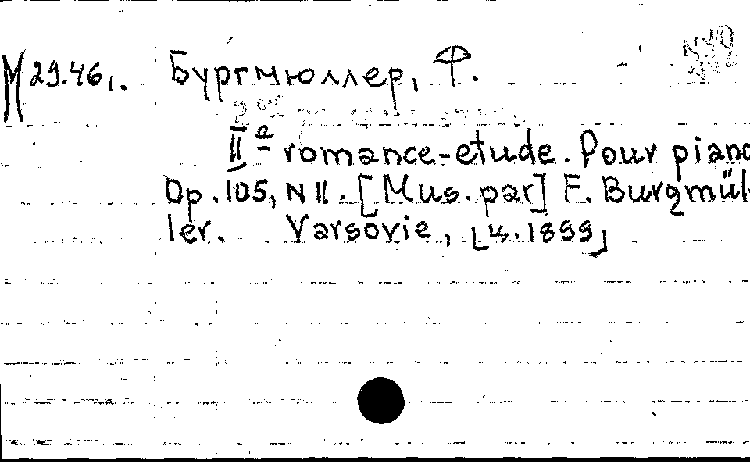 М 29.461. Бургмюллер, Ф.
IIª romance-etude. Pour piano
Op. 105, N II. [Mus. par] F. Burgmül-
ler. Varsovie, [ц. 1899]